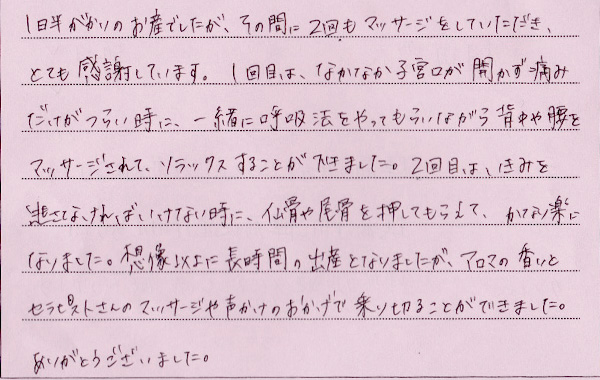 1日半がかりのお産でしたが、その間に2回もマッサージをしていただき、
とても感謝しています。1回目は、なかなか子宮口が開かず痛み
だけがつらい時に、一緒に呼吸法をやってもらいながら背中や腰を
マッサージされて、リラックスすることができました。2回目は、いきみを
逃さなければいけない時に、仙骨や尾骨を押してもらえて、かなり楽に
なりました。想像以上に長時間の出産となりましたが、アロマの香りと
セラピストさんのマッサージや声かけのおかげで乗り切ることができました。
ありがとうございました。